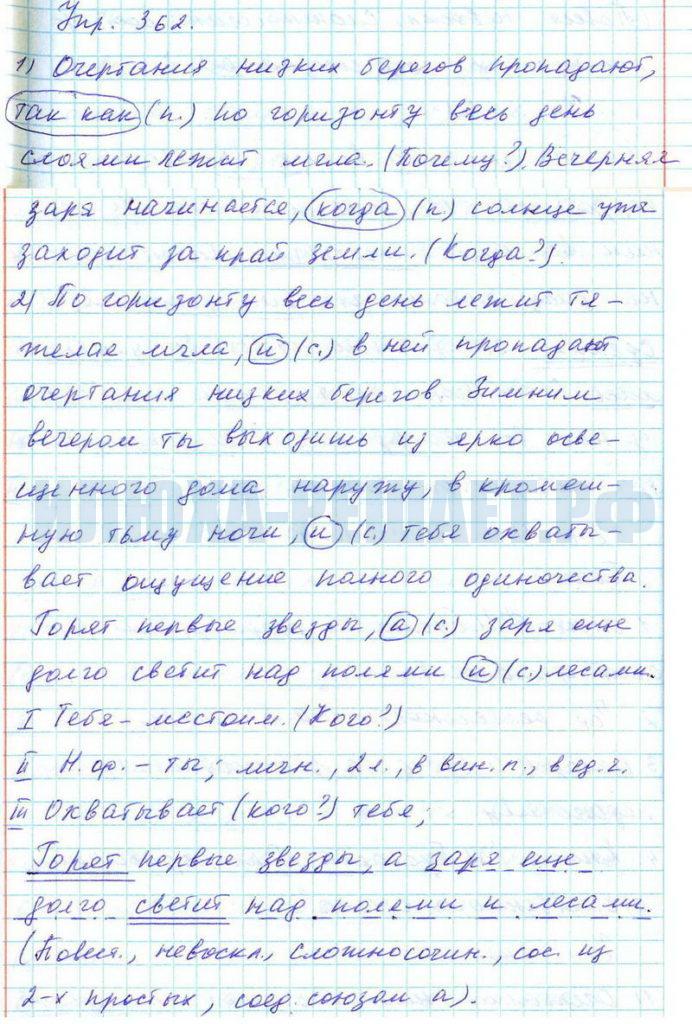 Упр. 362.
1) Очертания низких берегов пропадают,
так как (п.) по горизонту весь день
слоями лежит мгла. (Почему?). Вечерняя
заря начинается, когда (п.) солнце уже
заходит за край земли. (Когда?).
2) По горизонту весь день лежит тя-
желая мгла, и (с.) в ней пропадают
очертания низких берегов. Зимним
вечером ты выходишь из ярко осве-
щенного дома наружу, в кромеш-
ную тьму ночи, и (с.) тебя охваты-
вает ощущение полного одиночества.
Горят первые звезды, а (с.) заря еще
долго светит над полями и (с.) лесами.
I Тебя - местоим. (Кого?)
II Н.ф. - ты; личн., 2 л., в вин. п., в ед. ч.
III Охватывает (кого?) тебя;
Горят первые звезды, а заря еще
долго светит над полями и лесами.
(Повест., невоскл., сложносочин., сос. из
2-х простых, соед. союзом а).